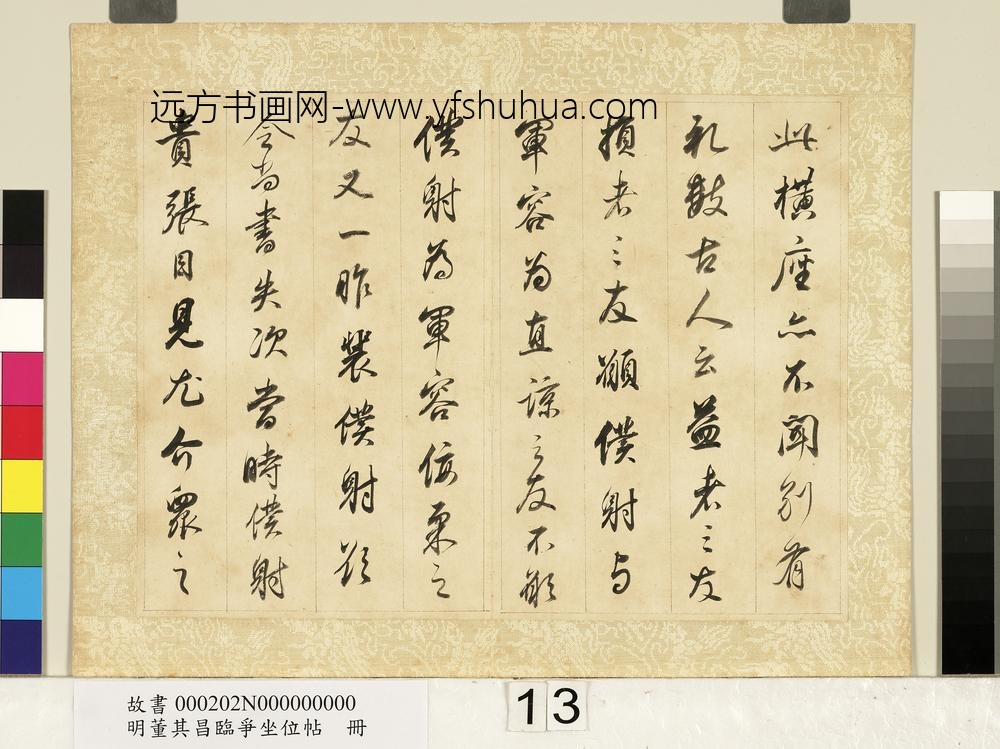 远方书画网-www.yfshuhua.com
此橫座亦不聞別有
禮數古人云益者三友
損者三友願僕射与
軍容為直諒之友不願
僕射為軍容佞柔之
友又一昨裴僕射欲
令尚書失次當時僕射
貴張目見尤介眾之
故書 000202N000000000
明董其昌臨爭坐位帖 冊
13